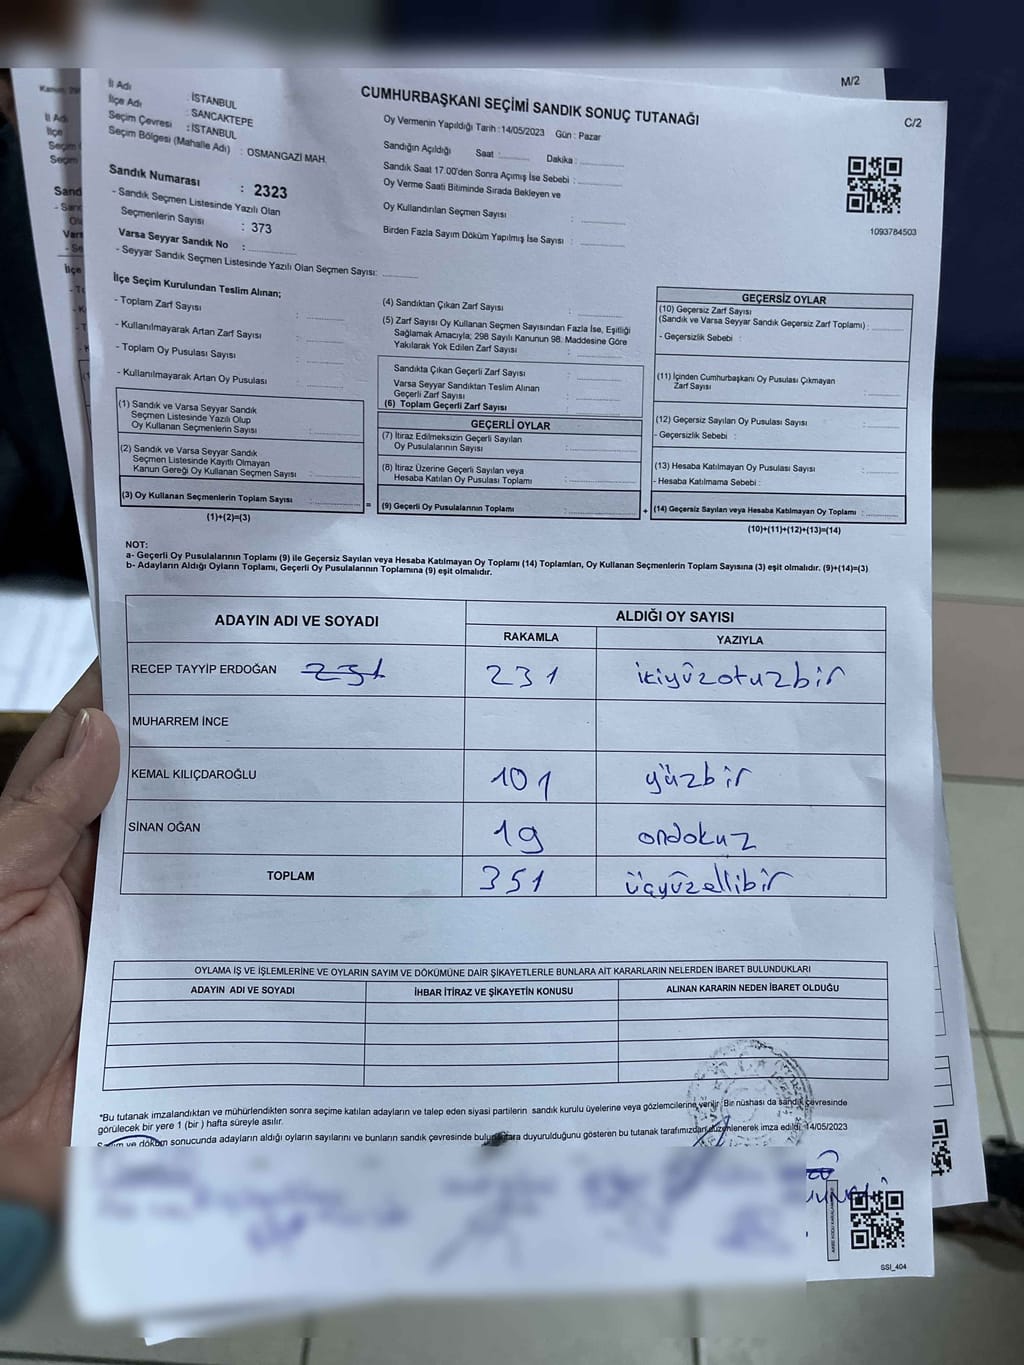 M/2
C/2
İl Adı : İSTANBUL
İlçe Adı : SANCAKTEPE
Seçim Çevresi : İSTANBUL
Seçim Bölgesi (Mahalle Adı) : OSMANGAZİ MAH.
Sandık Numarası : 2323
- Sandık Seçmen Listesinde Yazılı Olan
Seçmenlerin Sayısı : 373
Varsa Seyyar Sandık No :
- Seyyar Sandık Seçmen Listesinde Yazılı Olan Seçmen Sayısı:
CUMHURBAŞKANI SEÇİMİ SANDIK SONUÇ TUTANAĞI
Oy Vermenin Yapıldığı Tarih : 14/05/2023 Gün : Pazar
Sandığın Açıldığı Saat : Dakika :
Sandık Saat 17:00'den Sonra Açımış İse Sebebi :
Oy Verme Saati Bitiminde Sırada Bekleyen ve
Oy Kullandırılan Seçmen Sayısı :
Birden Fazla Sayım Döküm Yapılmış İse Sayısı :
1093784503
İlçe Seçim Kurulundan Teslim Alınan;
- Toplam Zarf Sayısı :
- Kullanılmayarak Artan Zarf Sayısı :
- Toplam Oy Pusulası Sayısı :
- Kullanılmayarak Artan Oy Pusulası :
(1) Sandık ve Varsa Seyyar Sandık
Seçmen Listesinde Yazılı Olup
Oy Kullanan Seçmenlerin Sayısı :
(2) Sandık ve Varsa Seyyar Sandık
Seçmen Listesinde Kayıtlı Olmayan
Kanun Gereği Oy Kullanan Seçmen Sayısı :
(3) Oy Kullanan Seçmenlerin Toplam Sayısı :
(1)+(2)=(3)
(4) Sandıktan Çıkan Zarf Sayısı :
(5) Zarf Sayısı Oy Kullanan Seçmen Sayısından Fazla İse, Eşitliği
Sağlamak Amacıyla; 298 Sayılı Kanunun 98. Maddesine Göre
Yakılarak Yok Edilen Zarf Sayısı :
Sandıkta Çıkan Geçerli Zarf Sayısı :
Varsa Seyyar Sandıktan Teslim Alınan
Geçerli Zarf Sayısı :
(6) Toplam Geçerli Zarf Sayısı :
GEÇERLİ OYLAR
(7) İtiraz Edilmeksizin Geçerli Sayılan
Oy Pusulalarının Sayısı :
(8) İtiraz Üzerine Geçerli Sayılan veya
Hesaba Katılan Oy Pusulası Toplamı :
= (9) Geçerli Oy Pusulalarının Toplamı : +
GEÇERSİZ OYLAR
(10) Geçersiz Zarf Sayısı
(Sandık ve Varsa Seyyar Sandık Geçersiz Zarf Toplamı) :
- Geçersizlik Sebebi :
(11) İçinden Cumhurbaşkanı Oy Pusulası Çıkmayan
Zarf Sayısı :
(12) Geçersiz Sayılan Oy Pusulası Sayısı :
- Geçersizlik Sebebi :
(13) Hesaba Katılmayan Oy Pusulası Sayısı :
- Hesaba Katılmama Sebebi :
(14) Geçersiz Sayılan veya Hesaba Katılmayan Oy Toplamı :
(10)+(11)+(12)+(13)=(14)
NOT:
a- Geçerli Oy Pusulalarının Toplamı (9) ile Geçersiz Sayılan veya Hesaba Katılmayan Oy Toplamı (14) Toplamları, Oy Kullanan Seçmenlerin Toplam Sayısına (3) eşit olmalıdır. (9)+(14)=(3)
b- Adayların Aldığı Oyların Toplamı, Geçerli Oy Pusulalarının Toplamına (9) eşit olmalıdır.
ADAYIN ADI VE SOYADI
ALDIĞI OY SAYISI
RAKAMLA YAZIYLA
RECEP TAYYİP ERDOĞAN 231 231 ikiyüzotuzbir
MUHARREM İNCE
KEMAL KILIÇDAROĞLU 101 yüzbir
SİNAN OĞAN 19 ondokuz
TOPLAM 351 üçyüzellibir
OYLAMA İŞ VE İŞLEMLERİNE VE OYLARIN SAYIM VE DÖKÜMÜNE DAİR ŞİKAYETLERLE BUNLARA AİT KARARLARIN NELERDEN İBARET BULUNDUKLARI
ADAYIN ADI VE SOYADI İHBAR İTİRAZ VE ŞİKAYETİN KONUSU ALINAN KARARIN NEDEN İBARET OLDUĞU
*Bu tutanak imzalandıktan ve mühürlendikten sonra seçime katılan adayların ve talep eden siyasi partilerin sandık kurulu üyelerine veya gözlemcilerine verilir. Bir nüshası da sandık çevresinde
görülecek bir yere 1 (bir ) hafta süreyle asılır.
Sayım ve döküm sonucunda adayların aldığı oyların sayılarını ve bunların sandık çevresinde duyurulduğunu gösteren bu tutanak tarafımızdan düzenlenerek imza edildi. 14/05/2023
SSI_404